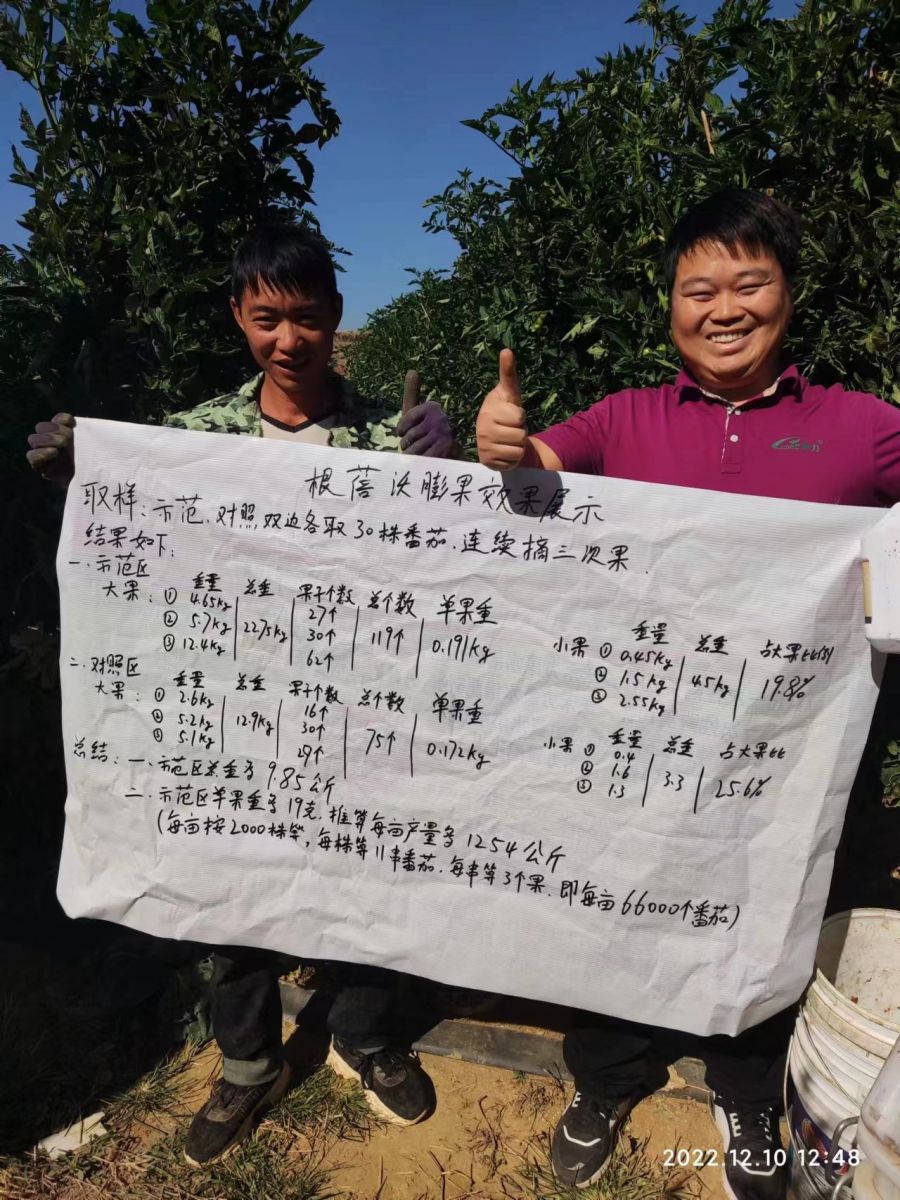 2022.12.10 12:48
根蓓沃膨果效果展示
取样:示范、对照,双边各取30株番茄.连续摘三次果
结果如下:
一、示范区
重量 总重 果子个数 总个数 单果重
大果:① 4.65kg 22.75kg 27个 119个 0.191kg
② 5.7kg 30个
③ 12.4kg 62个
重量 总重 占大果比例
小果 ① 0.45kg 4.5kg 19.8%
② 1.5kg
③ 2.55kg
二、对照区
重量 总重 果子个数 总个数 单果重
大果:① 2.6kg 12.9kg 16个 75个 0.172kg
② 5.2kg 30个
③ 5.1kg 29个
重量 总重 占大果比
小果 ① 0.4 3.3 25.6%
② 1.6
③ 1.3
总结:一.示范区总重多9.85公斤
二.示范区单果重多19克.推算每亩产量多1254公斤
(每亩按2000株算,每株算11串番茄.每串算3个果.即每亩66000个番茄)
2022.12.10 12:48